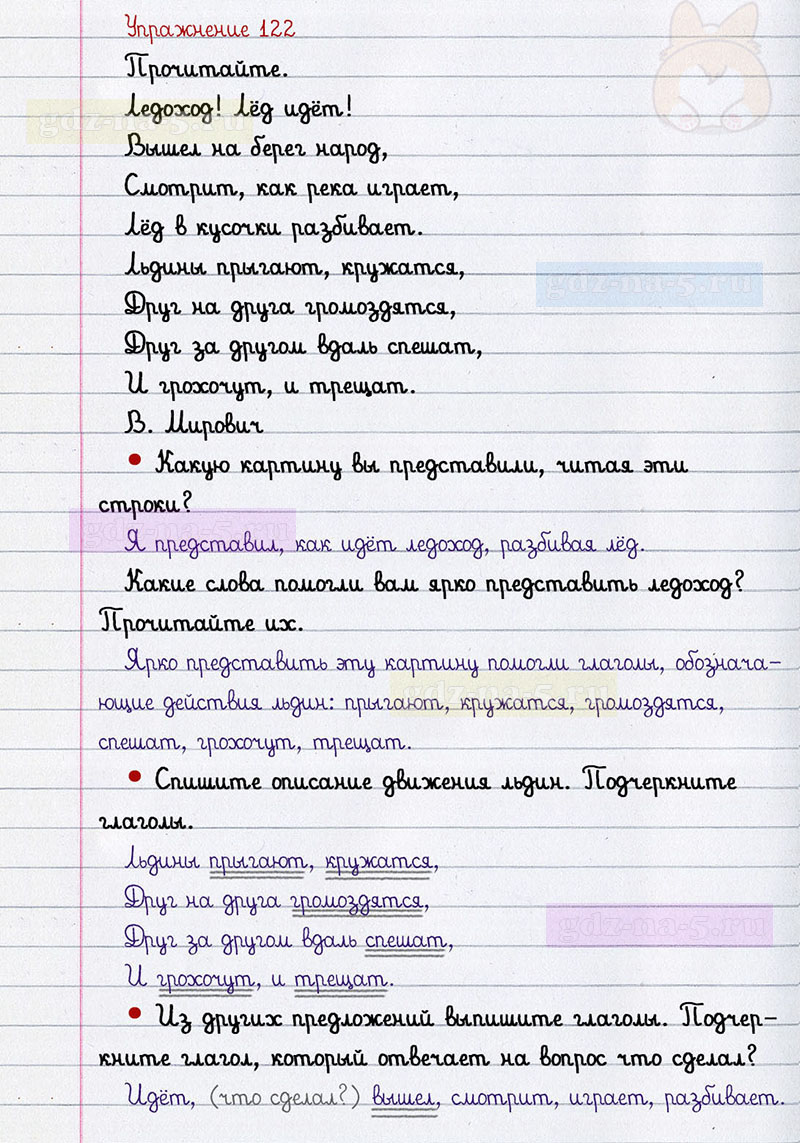 Упражнение 122
Прочитайте.
Ледоход! Лёд идёт!
gdz-na-5.ru
Вышел на берег народ,
Смотрит, как река играет,
Лёд в кусочки разбивает.
Льдины прыгают, кружатся,
gdz-na-5.ru
Друг на друга громоздятся,
Друг за другом вдаль спешат,
И грохочут, и трещат.
В. Мирович
• Какую картину вы представили, читая эти
строки?
gdz-na-5.ru
Я представил, как идёт ледоход, разбивая лёд.
Какие слова помогли вам ярко представить ледоход?
Прочитайте их.
Ярко представить эту картину помогли глаголы, обознача-
gdz-na-5.ru
ющие действия льдин: прыгают, кружатся, громоздятся,
спешат, грохочут, трещат.
• Спишите описание движения льдин. Подчеркните
глаголы.
Льдины прыгают, кружатся,
Друг на друга громоздятся,
gdz-na-5.ru
Друг за другом вдаль спешат,
И грохочут, и трещат.
• Из других предложений выпишите глаголы. Подчер-
кните глагол, который отвечает на вопрос что сделал?
Идёт, (что сделал?) вышел, смотрит, играет, разбивает.